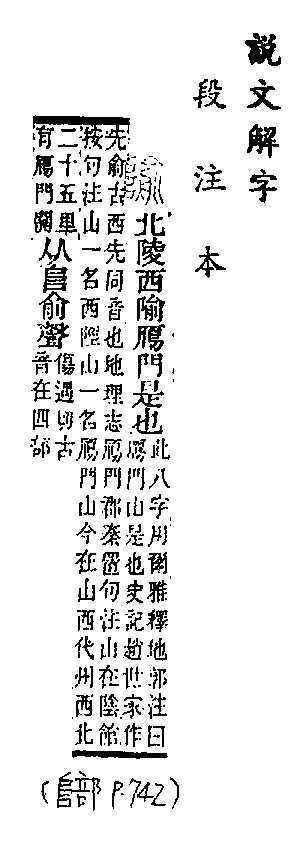 説文解字
段注本
隃
北陵西隃鴈門是也
此八字用爾雅釋地郭注曰
鴈門山是也史記趙世家作
先俞古西先同音也地理志鴈門郡秦置句注山在陰館
按句注山一名西陘山一名鴈門山今在山西代州西北
二十五里
有鴈門關
从𨸏俞聲
傷遇切古
音在四部
(𨸏部 P.742)